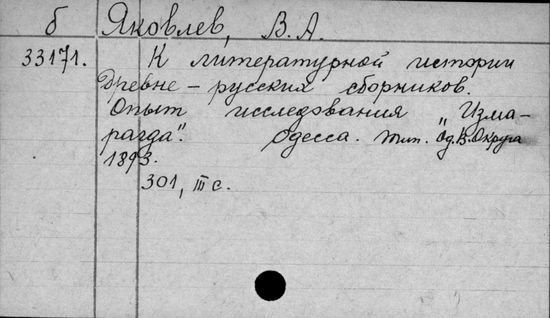 б Яковлев, В.А.
33171. К литературной истории
Древне-русских сборников.
Опыт исследования „Изма-
рагда”. Одесса. тип. Од.В.Округа
1893.
301, III с.